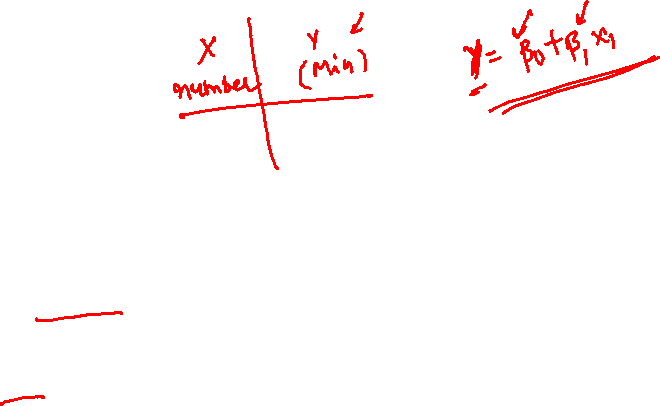 X Y
number (Min)
Y = β0 + β1 x1